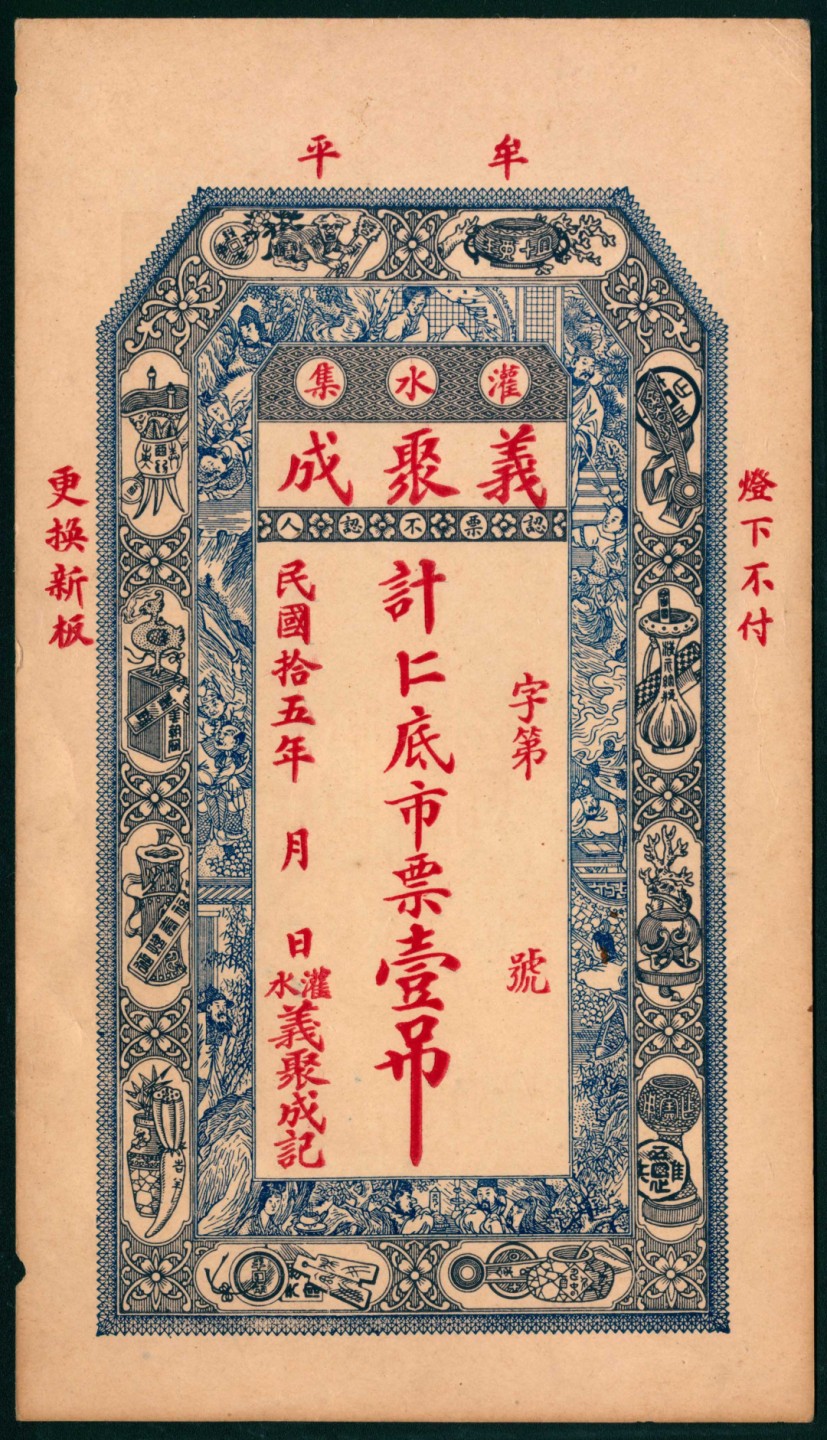 牟平
灌水集
義聚成
認票不認人
燈下不付
字第 號
計仁底市票壹吊
民國拾五年 月 日
灌水
義聚成記
更換新板